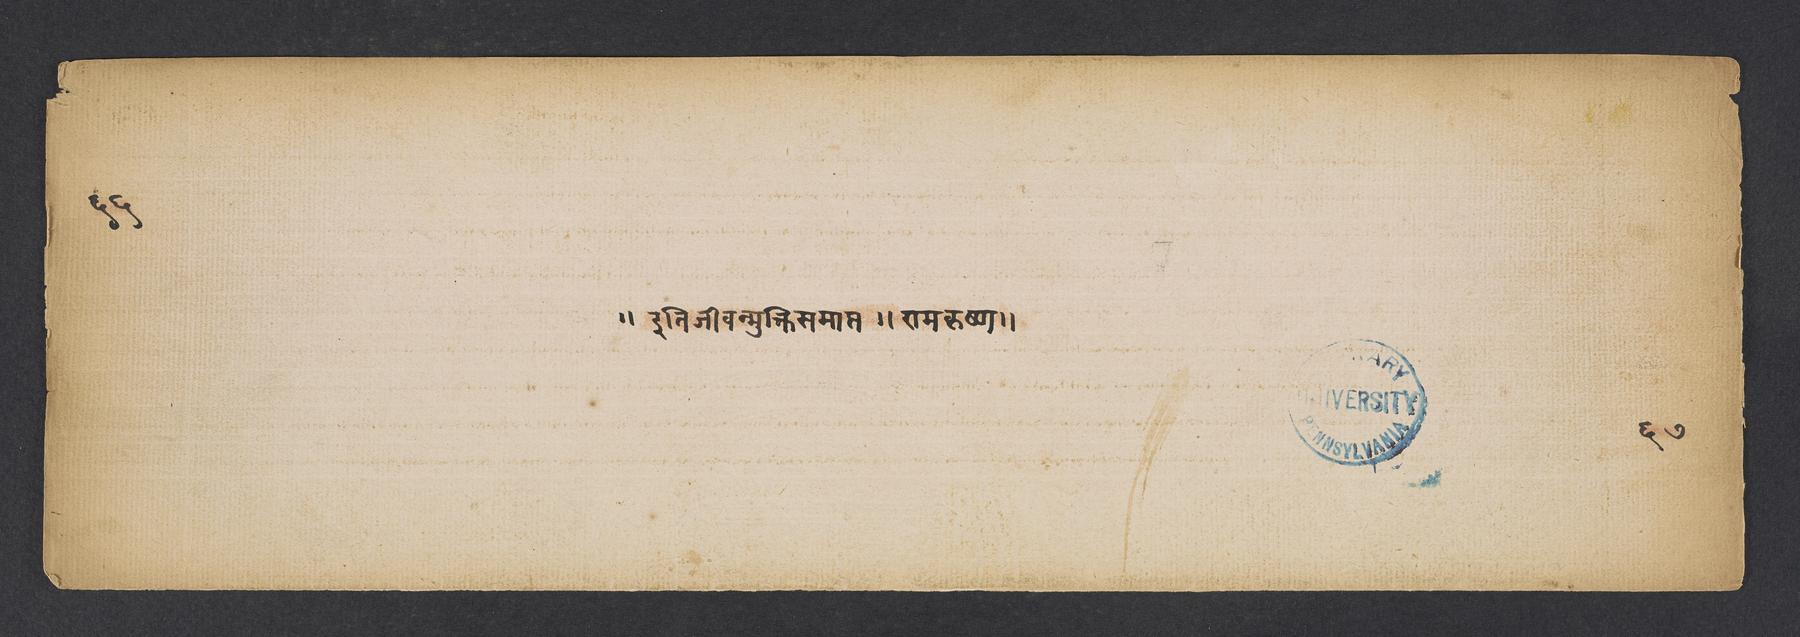 ६६
॥ इतिजीवन्मुक्तिसमाप्त ॥ रामकृष्ण॥
7
ARY
UNIVERSITY
PENNSYLVANIA
६७